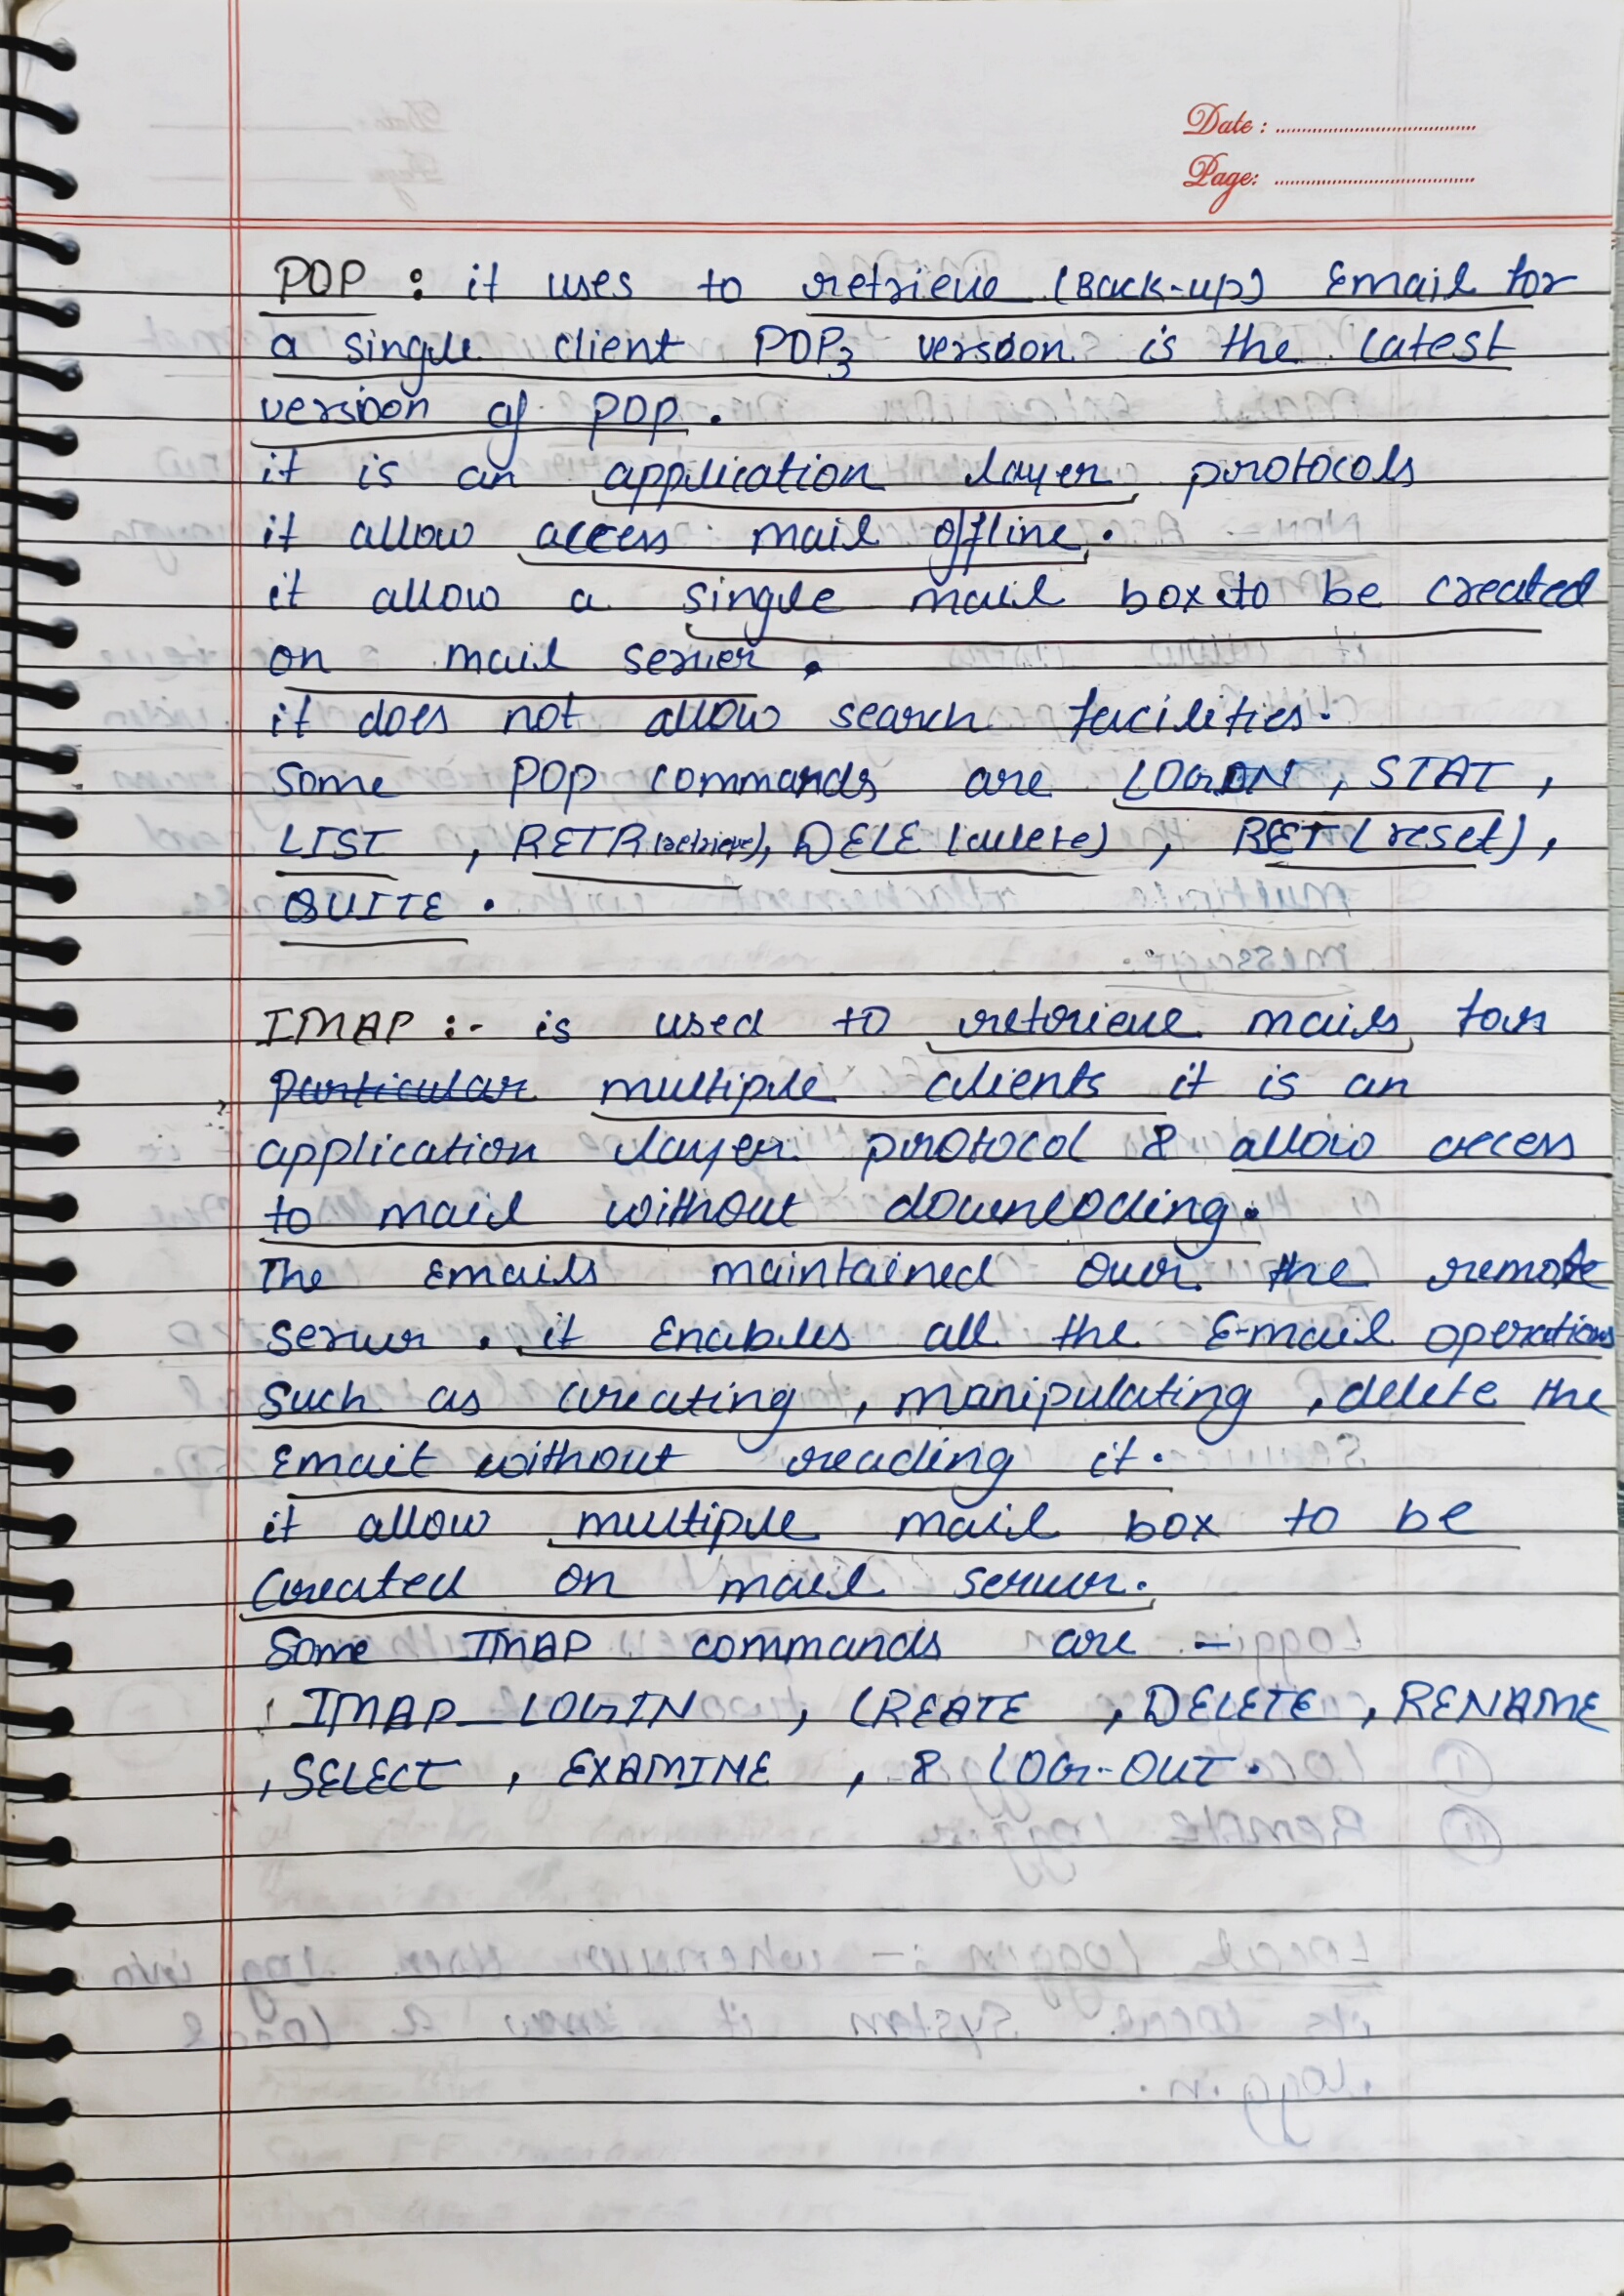 Date :
Page:
POP : it uses to retrieve (Back-up) Email for
a single client POP3 version is the latest
version of POP .
it is an application layer protocols
it allow access mail offline.
it allow a single mail box to be created
on mail server .
it does not allow search facilities.
Some POP commands are LOGIN , STAT ,
LIST , RETR (retrieve), DELE (delete) , RSET (reset) ,
QUITE .
IMAP :- is used to retrieve mails for
particular multiple clients it is an
application layer protocol & allow access
to mail without downloding.
The Emails maintained over the remote
server . it Enables all the E-mail operations
such as creating , manipulating , delete the
Email without reading it.
it allow multiple mail box to be
Created on mail server.
Some IMAP commands are -
IMAP_LOGIN , CREATE , DELETE , RENAME
, SELECT , EXAMINE , & LOG-OUT .